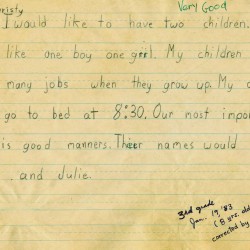 risty
Very Good
I would like to have two children.
like one boy one girl. My children
many jobs when they grow up. My
go to bed at 8:30. Our most impo
is good manners. Their names would
and Julie.
3rd grade
Jan. 19, '83
(8 yrs. old
corrected by